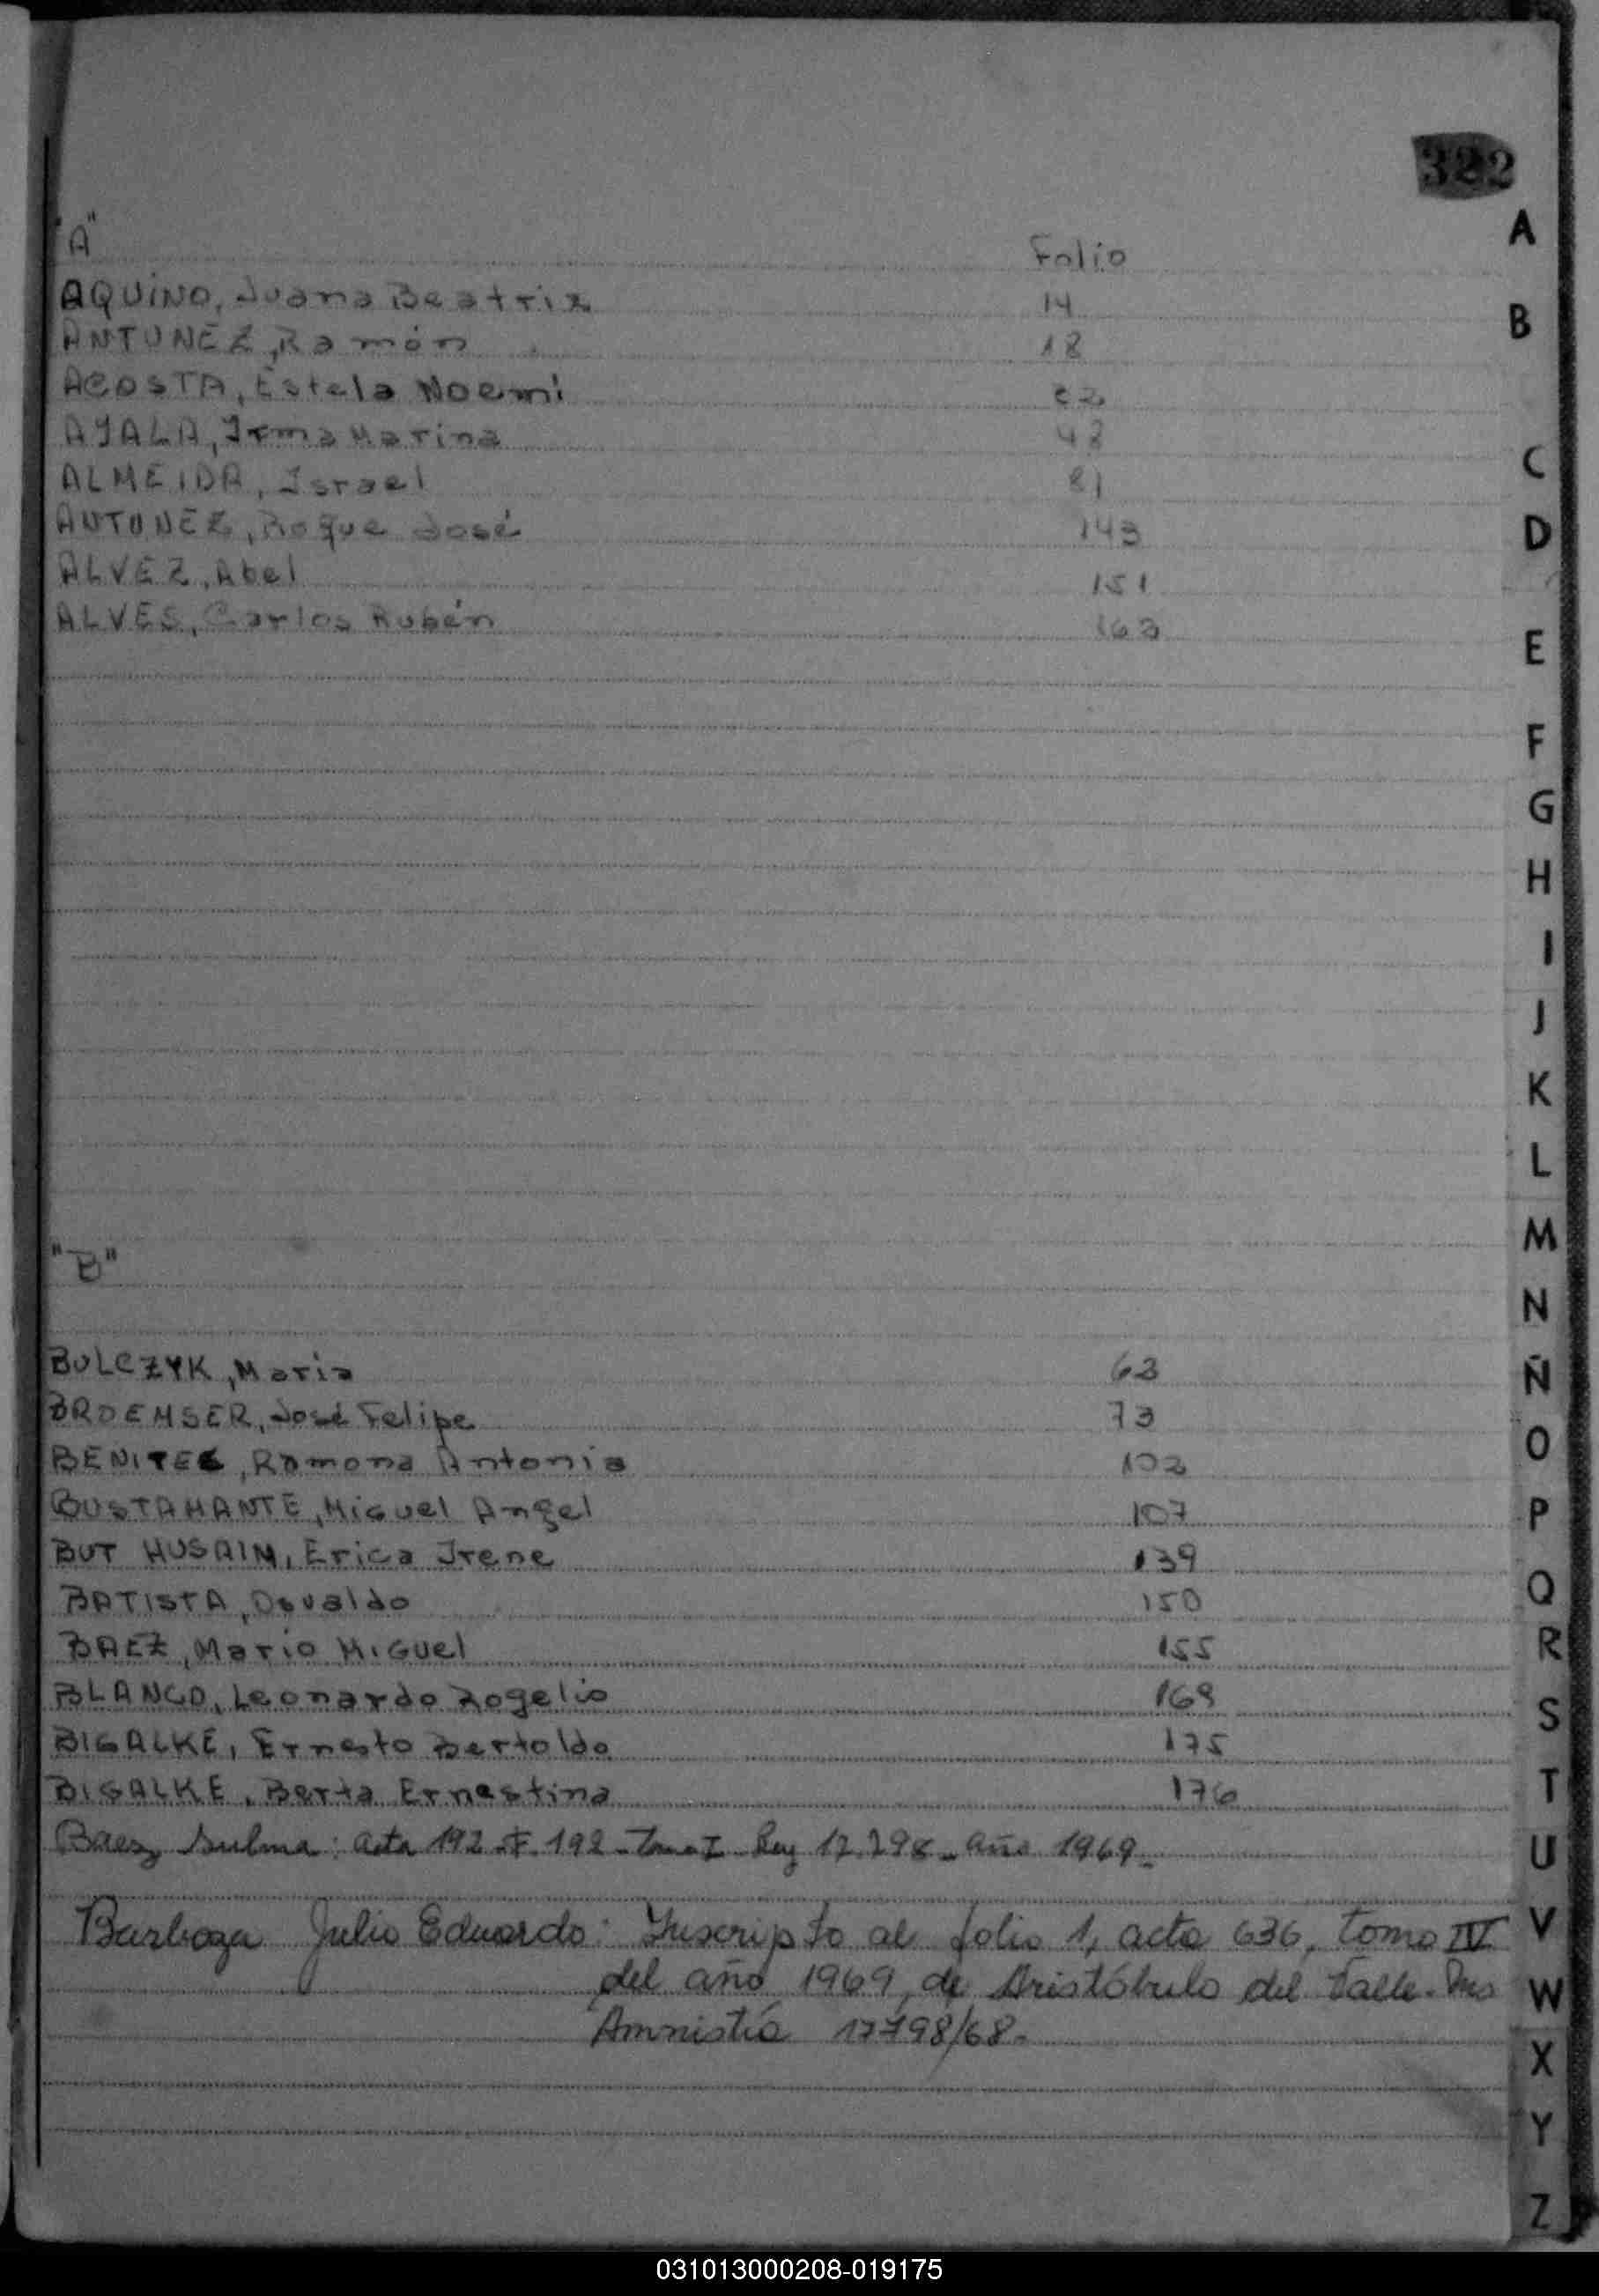 322
"A"
Folio
AQUINO, Juana Beatriz 14
ANTUNEZ, Ramón 18
ACOSTA, Estela Noemí 22
AYALA, Irma Marina 48
ALMEIDA, Israel 81
ANTUNEZ, Roque José 143
ALVEZ, Abel 151
ALVES, Carlos Rubén 163
"B"
BULCZYK, Maria 63
BROEMSER, José Felipe 73
BENITEZ, Ramona Antonia 102
BUSTAMANTE, Miguel Angel 107
BUT HUSAIM, Erica Irene 139
BATISTA, Osvaldo 150
BAEZ, Mario Miguel 155
BLANCO, Leonardo Rogelio 169
BIGALKE, Ernesto Bertoldo 175
BIGALKE, Berta Ernestina 176
Baez Sulma: acta 192 - F. 192 - Tomo I Ley 17.798 - año 1969.-
Barboza Julio Eduardo: Inscripto al folio 1, acta 636, tomo IV
del año 1969, de Aristóbulo del Valle. Mes
Amnistía 17798/68.
A
B
C
D
E
F
G
H
I
J
K
L
M
N
Ñ
O
P
Q
R
S
T
U
V
W
X
Y
Z
031013000208-019175